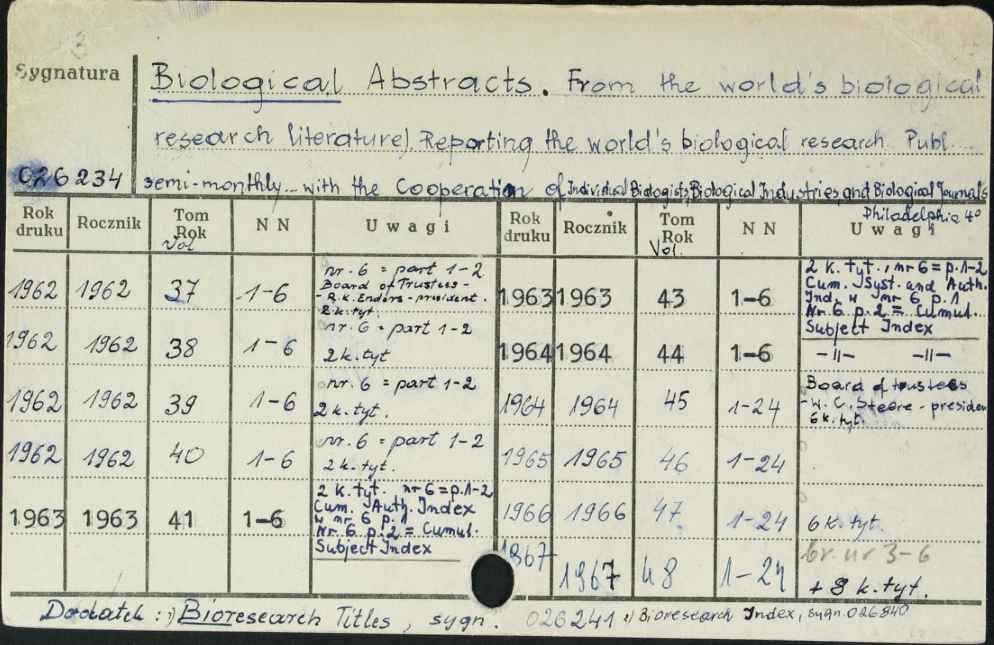 3
Sygnatura
Biological Abstracts. From the world's biological
research literature). Reporting the world's biological research. Publ.
026234
semi-monthly... with the Cooperation of Individual Biologists, Biological Industries, and Biological Journals
Philadelphia 4°
Rok druku Rocznik Tom Rok Vol N N Uwagi Rok druku Rocznik Tom Rok Vol. N N Uwagi
1962 1962 37 1-6
nr. 6 = part 1-2
Board of Trustees -
- R.K. Enders - president.
2 k. tyt.
1962 1962 38 1-6
nr. 6 = part 1-2
2 k. tyt
1962 1962 39 1-6
nr. 6 = part 1-2
2 k. tyt.
1962 1962 40 1-6
nr. 6 = part 1-2
2 k. tyt.
1963 1963 41 1-6
2 k. tyt. nr 6 = p. 1-2
Cum. Auth. Index
w nr 6 p. 1
Nr 6 p. 2 = Cumul.
Subject Index
1963 1963 43 1-6
2 k. tyt., nr 6 = p. 1-2
Cum. Syst. and Auth.
Ind. w nr 6 p. 1
Nr 6 p. 2 = Cumul.
Subject Index
1964 1964 44 1-6 -||- -||-
1964 1964 45 1-24
Board of trustees
- W. C. Steere - presiden
6 k. tyt.
1965 1965 46 1-24
1966 1966 47 1-24 6 k. tyt.
1967 1967 48 1-24
br. nr 3-6
+ 8 k. tyt.
Dodatek: 1) Bioresearch Titles, sygn. 026241 1) Bioresearch Index, sygn. 026840